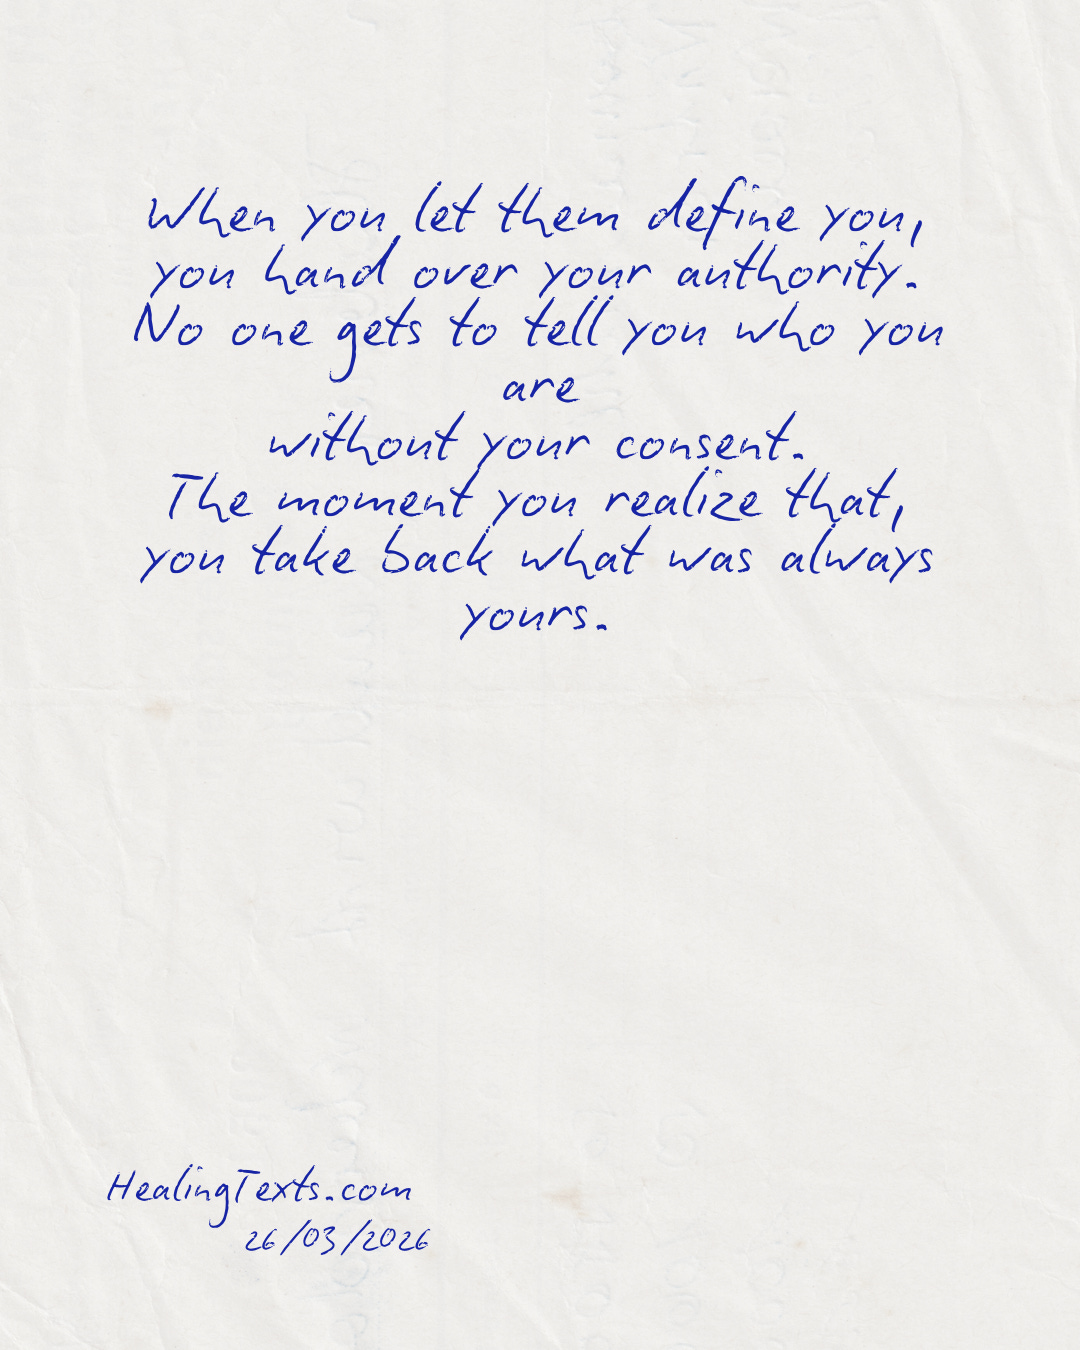 When you let them define you,
you hand over your authority.
No one gets to tell you who you
are
without your consent.
The moment you realize that,
you take back what was always
yours.
HealingTexts.com
26/03/2026